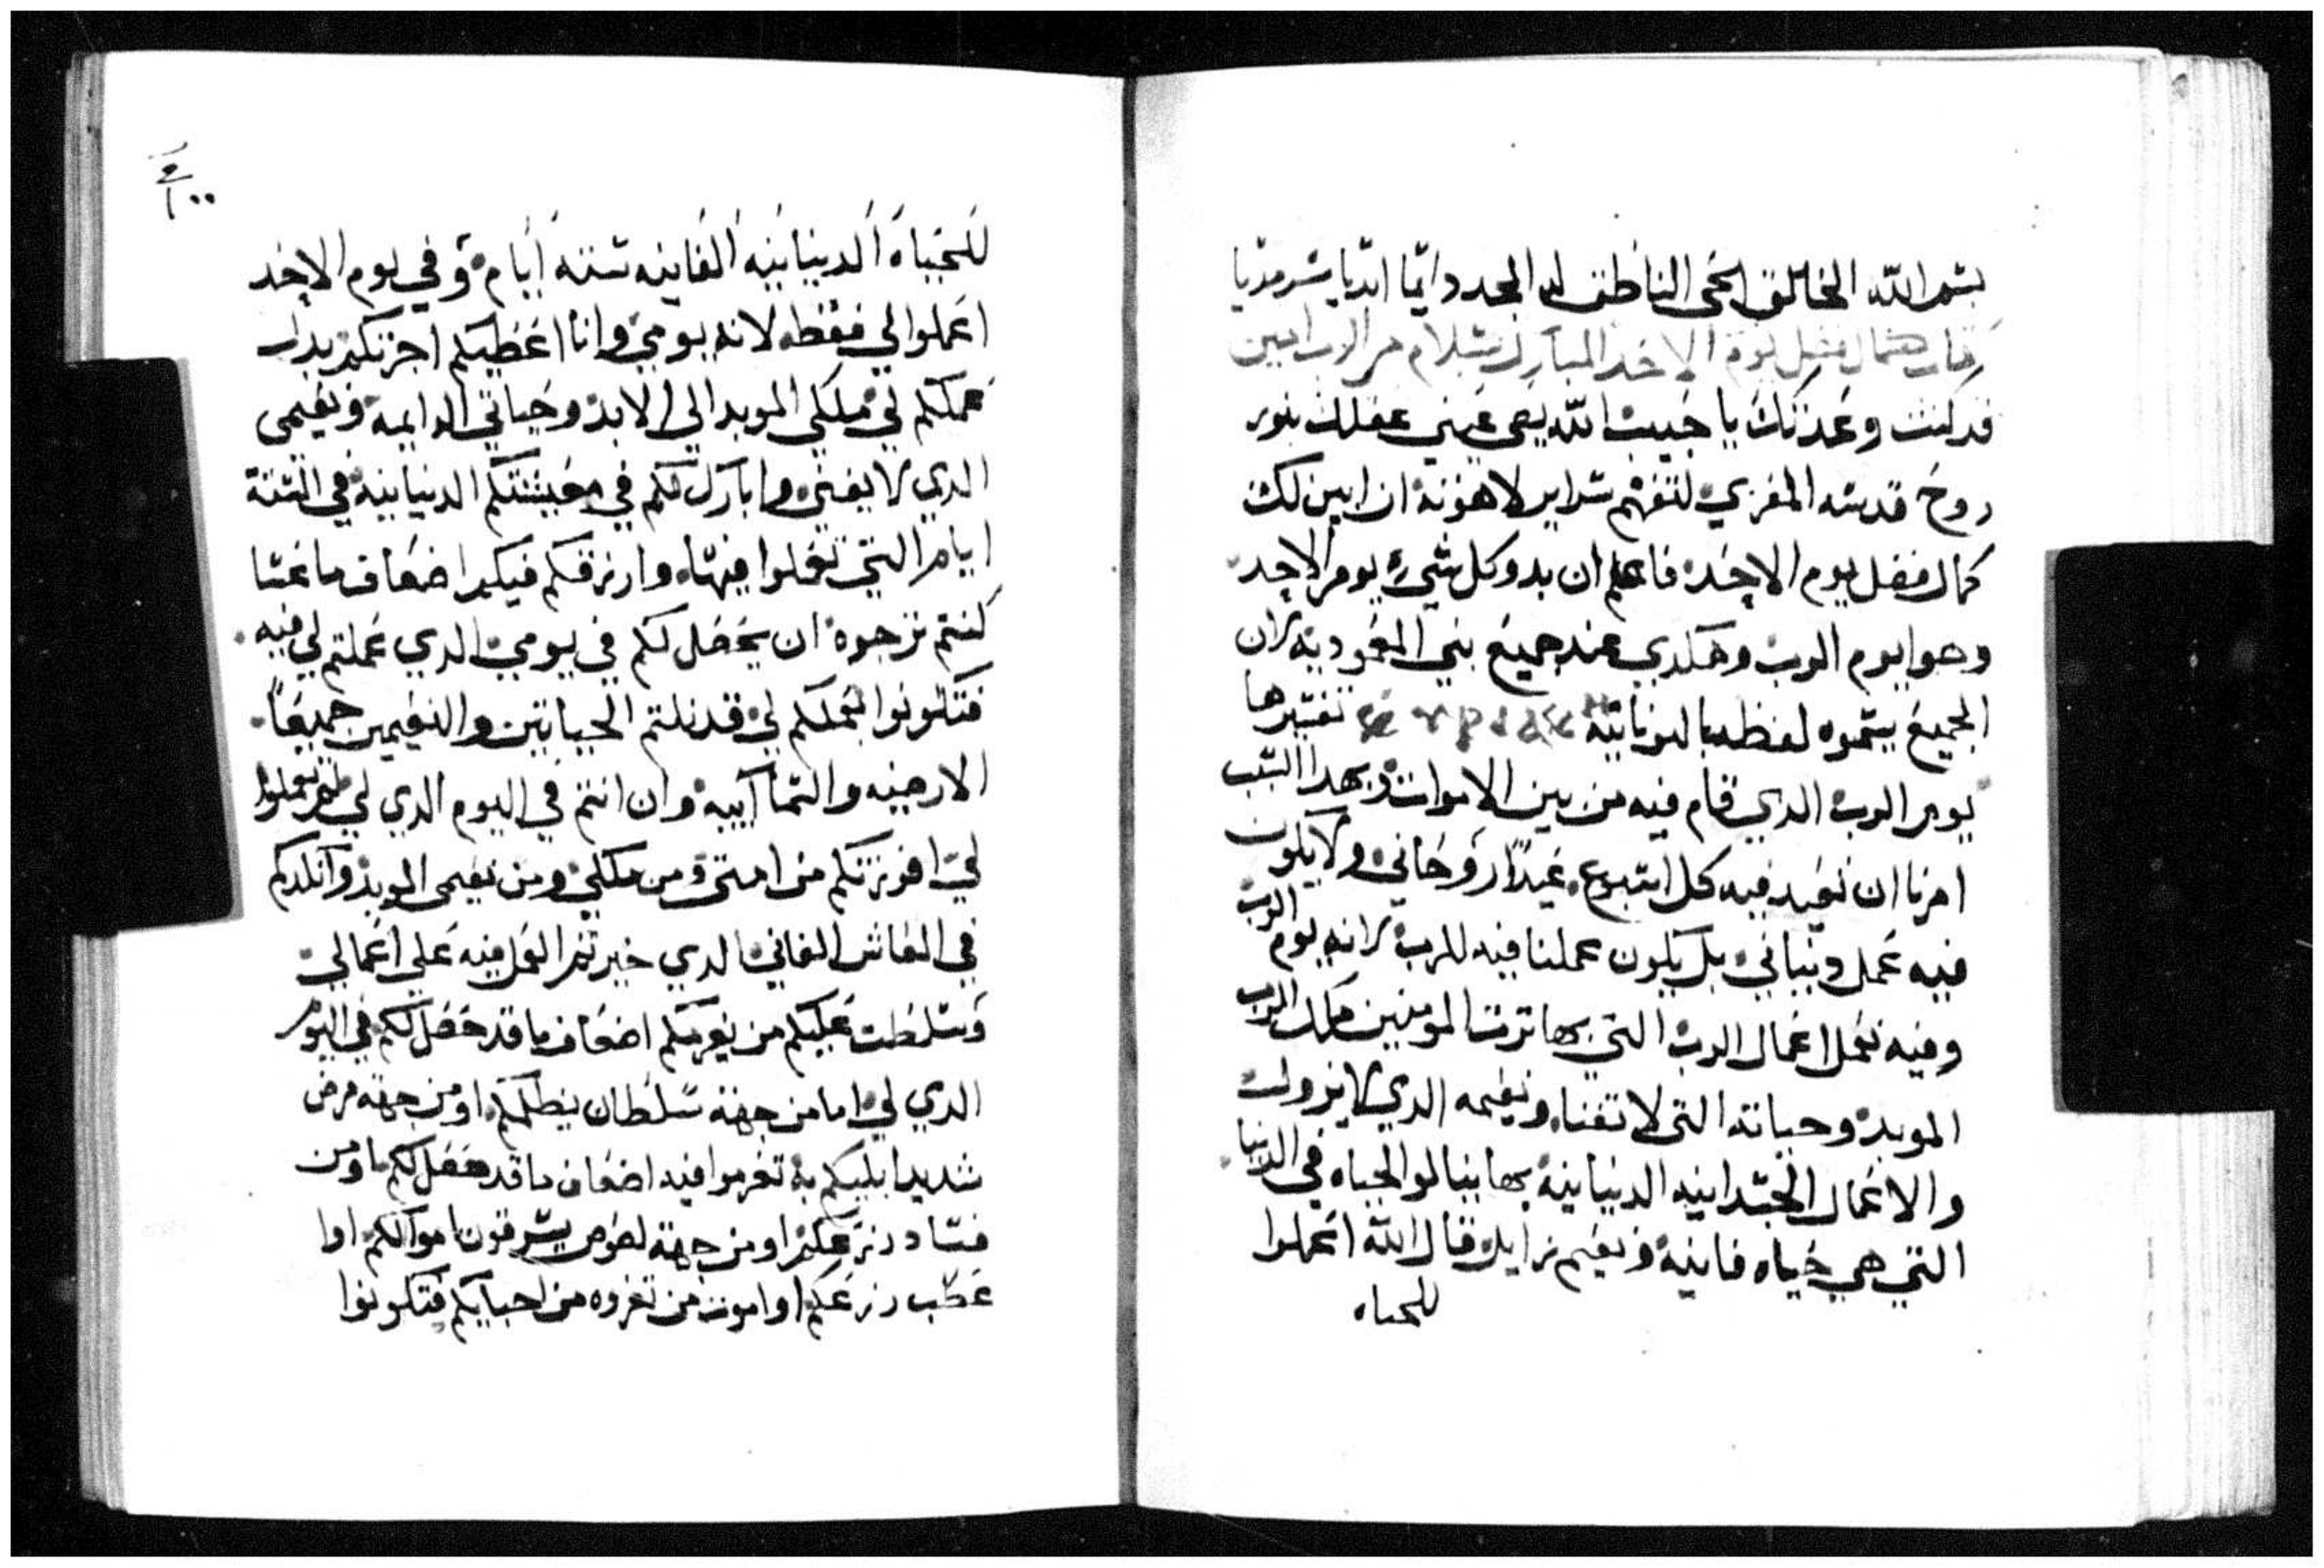 بسم الله الخالق الحى الناطق له المجد دايما ابديا سرمديا
كمال فضل يوم الاحد المبارك بسلام من الرب امين
قد كنت وعدتك يا حبيب الله يضى عينى عقلك بنور
روح قدسه المعزي لتفهم سراير لاهوته ان ابين لك
كمال فضل يوم الاحد فاعلم ان بدو كل شيء يوم الاحد
وهوا يوم الرب وهكدي عند جميع بني المعمودية لان
الجميع يسموه لفظه باليونانية تفسيرها
يوم الرب الدي قام فيه من بين الاموات وبهدا السبب
امرنا ان نعيد فيه كل اسبوع عيدا روحاني ولا يكون
فيه عمل دنياني بل يكون عملنا فيه للرب لانه يوم الرب
وفيه نعمل اعمال الرب التي بها ترت المومنين ملك الرب
الموبد وحياته التى لا تفنا ونعيمه الدي لا يزول
والاعمال الجسدانيه الدنيانية بها ينالو الحياه في الدنيا
التي هي حياه فانية ونعيم زايل قال الله اعملوا
للحياه
١٠٠
للحياة الدنيانيه الفانيه ستة ايام وفي يوم الاحد
اعملوا لي فقط لانه يومي وانا اعطيكم اجرتكم بدل
عملكم لي ملكي الموبد الي الابد وحياتي الدايمة ونعيمى
الدي لا يفنى وابارك لكم في معيشتكم الدنيانية في الستة
ايام التي تعملوا فيها وارزقكم فيكم اضعاف ما عسا
كنتم ترجوه ان يحصل لكم في يومي الدي عملتم لي فيه
فتكونوا بعملكم لي قد نلتم الحياتين والنعيمين جميعا
الارضيه والسماآييه وان انتم في اليوم الدي لي لم تعملوا
لي افرزتكم من امتى ومن ملكي ومن نعيمى الموبد وآنكدكم
في المعاش الفاني الدي خيرتم العمل فيه علي اعمالي
وسلطت عليكم من يغرمكم اضعاف ما قد حصل لكم في اليوم
الدي لي اما من جهة سلطان يظلمكم او من جهة مرض
شديد ابليكم به تغرموا فيه اضعاف ما قد حصل لكم او من
فساد زرعكم او من جهة لصوص يسرقون اموالكم اوا
عطب زرعكم اوا موت من تعزوه من احبايكم فتكونوا